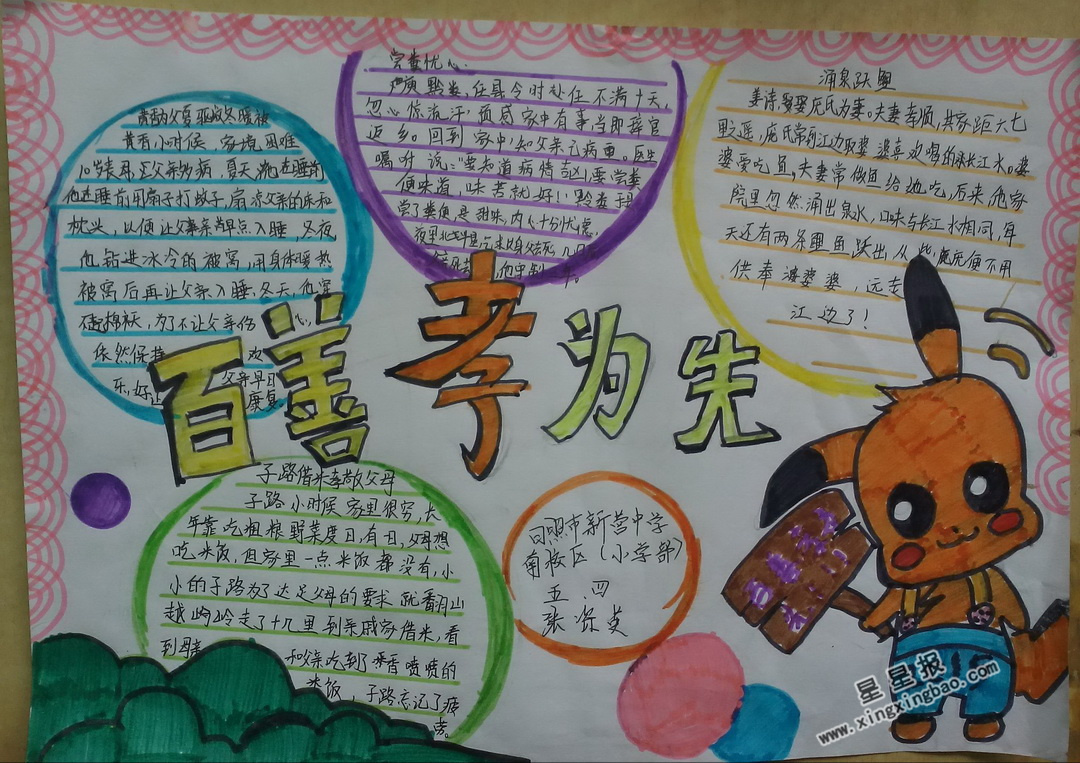 百善孝为先
黄香小时候,家境困难
10岁丧母,父亲多病,夏天,他在睡前
他在睡前用扇子打蚊子,扇凉父亲的床和
枕头,以便让父亲早点入睡,冬夜
他钻进冰冷的被窝,用身体暖热
被窝后再让父亲入睡,冬天,他穿
棉袄,为了不让父亲伤
依然保持 欢
乐,好让 父亲早日
康复
尝粪忧心
黔娄,任县令时赴任不满十天,
忽心惊流汗,预感家中有事,当即辞官
返乡。回到家中,知父亲已病重。医生
嘱咐说:"要知道病情吉凶,要尝粪
便味道,味苦就好!"黔娄于是
尝了粪便是甜味,内心十分忧虑,
涌泉跃鲤
姜诗娶庞氏为妻。夫妻孝顺,其家距六七
里遥,庞氏常到江边取婆婆喜欢喝的长江水。婆
婆要吃鱼,夫妻常做鱼给她吃,后来,他家
院里忽然涌出泉水,口味与长江水相同,每
天还有两条鲤鱼跃出,从此庞氏便不用
供奉婆婆婆,远走
江边了!
子路借米孝敬父母
子路小时候家里很穷,长
年靠吃粗粮野菜度日,有日,父母想
吃米饭,但家里一点米饭都没有,小
小的子路为了达足父母的要求就翻山
越岭走了十几里到亲戚家借米,看
到 和父亲吃到了香喷喷的
米饭,子路忘记了疲
劳。
日照市新营中学
南校区(小学部)
五.四
张
星星报
www.xingxingbao.com